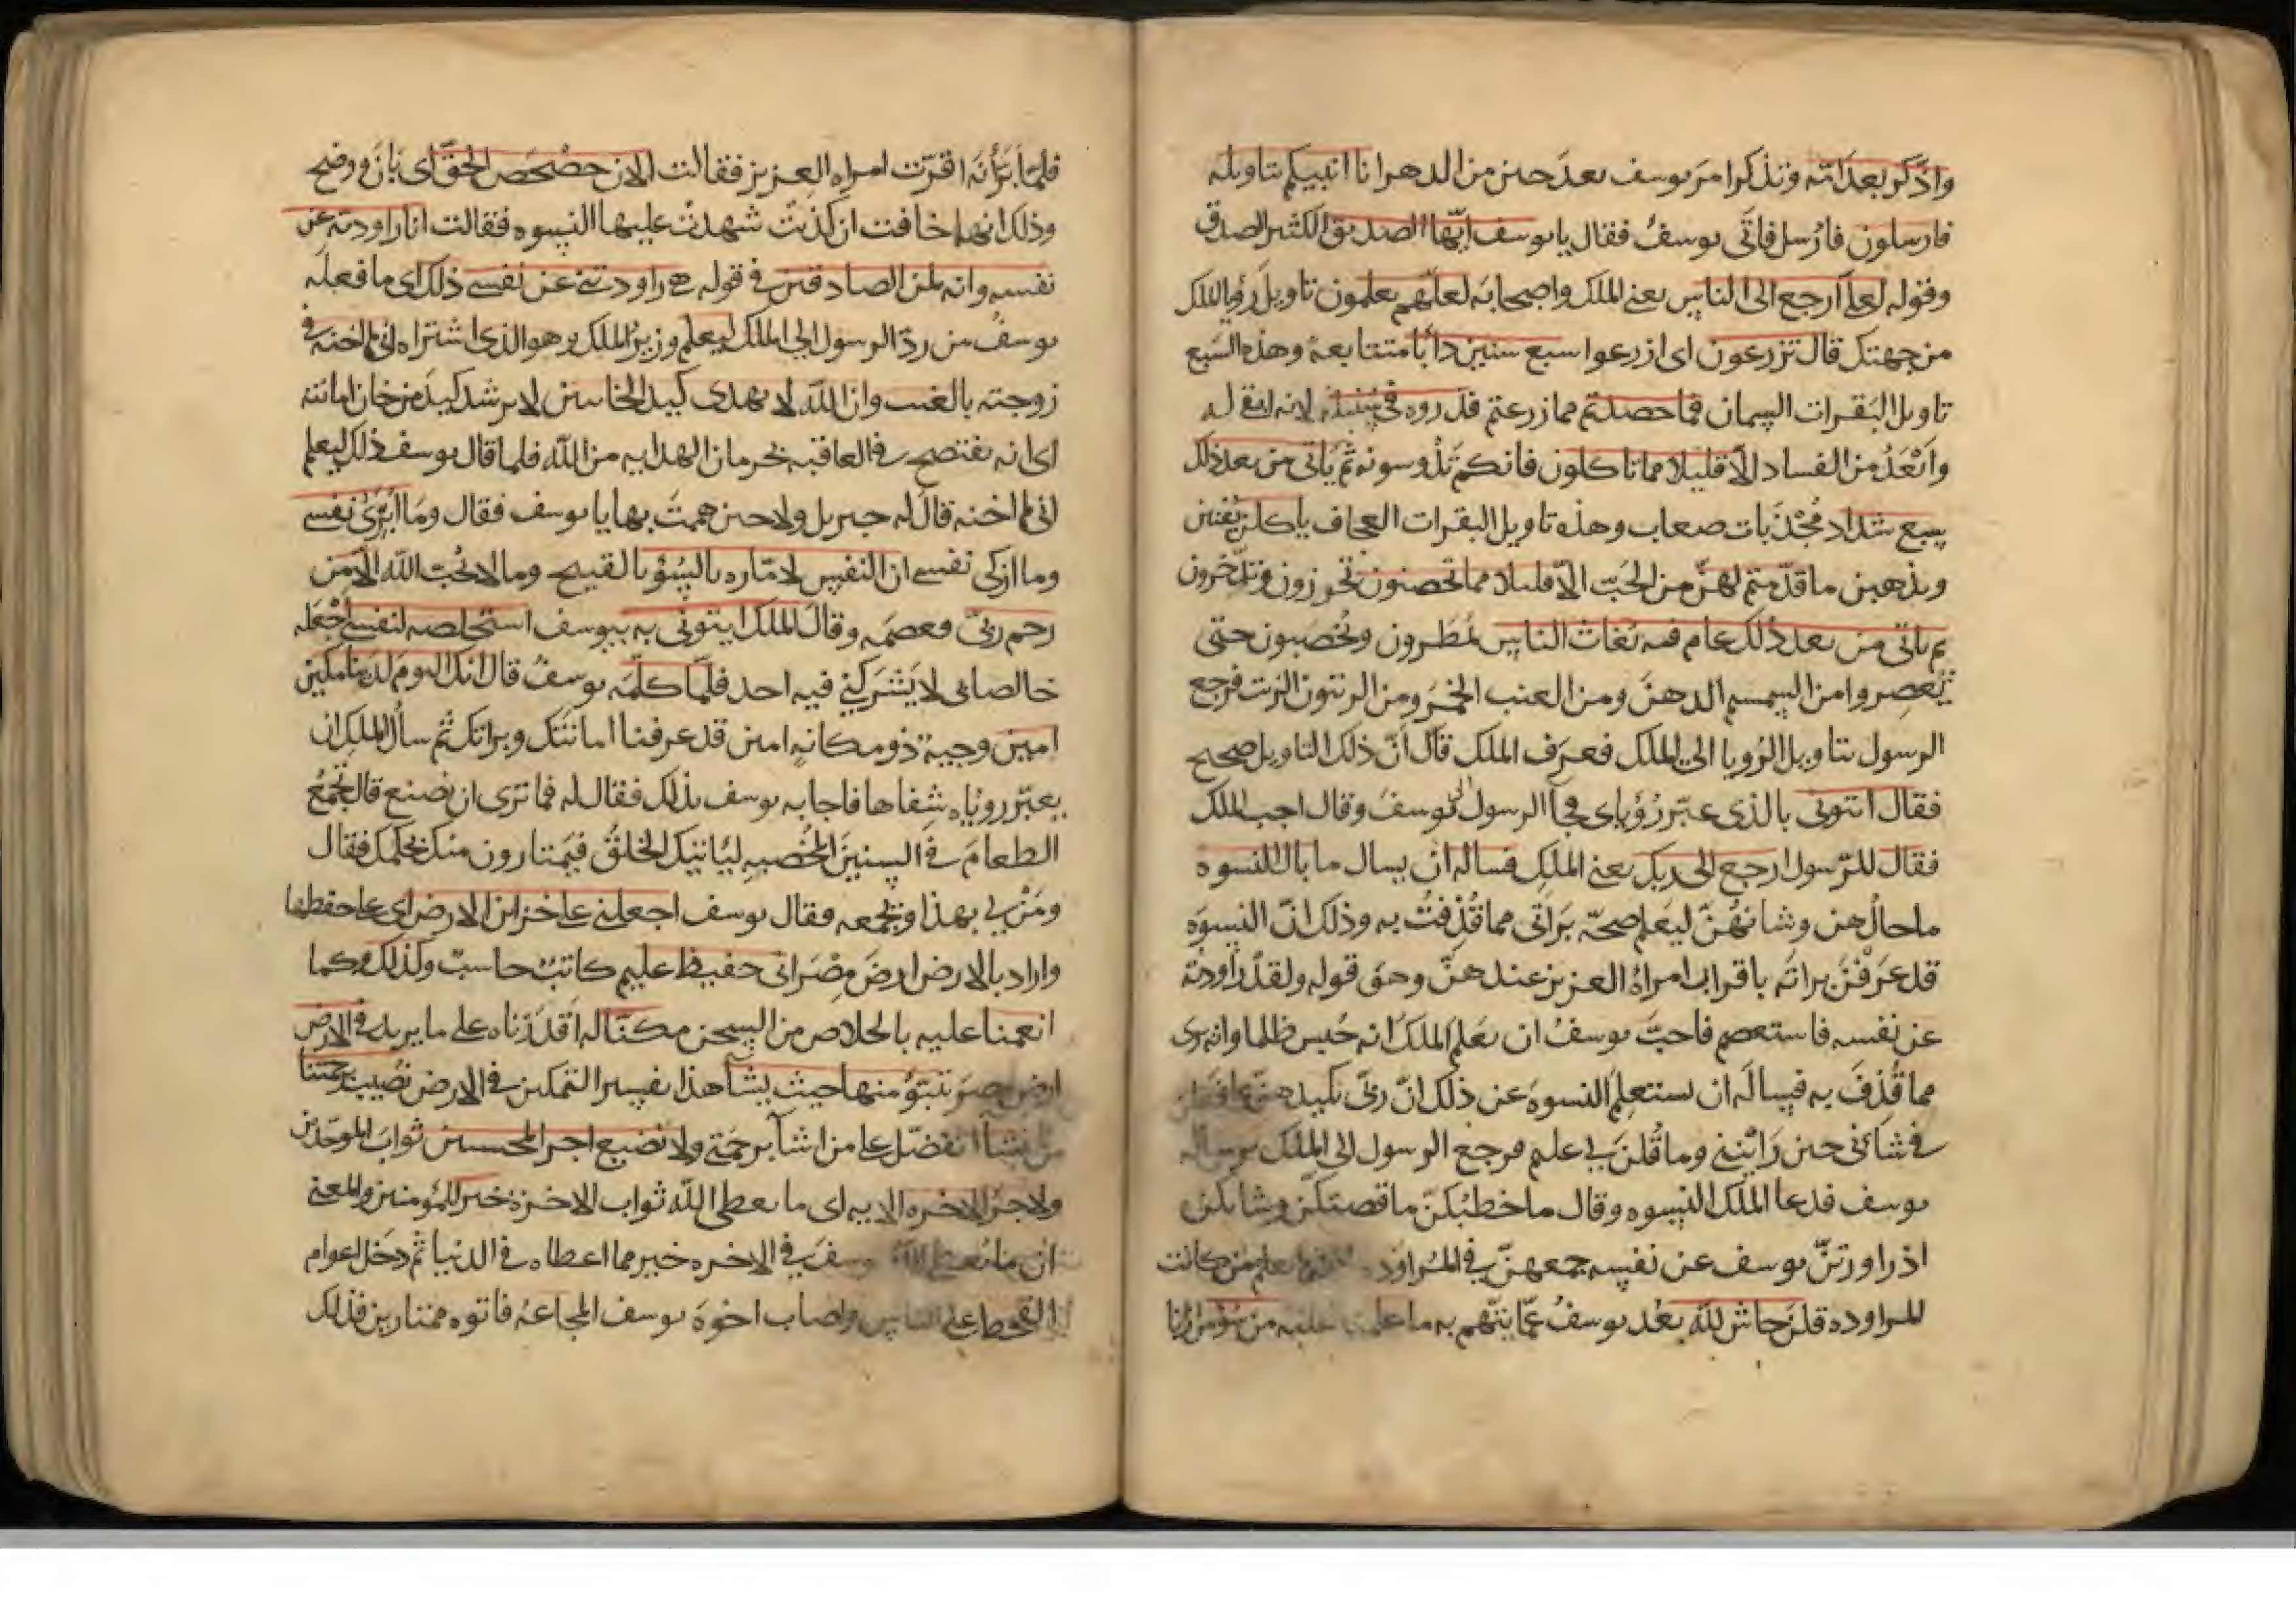 وادّكر بعد امّة وتذكر امر يوسف بعد حين من الدهر انا انبيكم بتاويله
فارسلون فارسل فاتى يوسف فقال يا يوسف ايّها الصديق الكثير الصدق
وقوله لعلى ارجع الى الناس يعنى الملك واصحابه لعلهم يعلمون تاويل رؤيا الملك
من جهتك قال تزرعون اى ازرعوا سبع سنين دأبا متتابعة وهذه السبع
تاويل البقرات السمان فما حصدتم مما زرعتم فذروه فى سنبله لانه ابقى له
وابعد من الفساد الا قليلا مما تاكلون فانكم تدوسونه ثم ياتى من بعد ذلك
سبع شداد مجدبات صعاب وهذه تاويل البقرات العجاف ياكلن يفنين
ويذهبن ما قدمتم لهن من الحب الا قليلا مما تحصنون تحرزون وتدّخرون
ثم ياتى من بعد ذلك عام فيه يغاث الناس يمطرون ويخصبون حتى
يعصروا من السمسم الدهن ومن العنب الخمر ومن الزيتون الزيت فرجع
الرسول بتاويل الرويا الى الملك فعرف الملك قال ان ذلك التاويل صحيح
فقال ائتونى بالذى عبّر رؤياى فجآ الرسول الى يوسف وقال اجب الملك
فقال للرسول ارجع الى ربك يعنى الملك فساله ان يسال ما بال النسوه
ما حال هن وشانهنّ ليعلم صحّة برآتى مما قذفت به وذلك انّ النسوة
قد عرفن براته باقرار امراة العزيز عند هنّ وهو قوله ولقد راودته
عن نفسه فاستعصم فاحبّ يوسف ان يعلم الملك انه حبس ظلما وانه برى
مما قذف به فيساله ان يستعلم النسوة عن ذلك انّ ربى بكيدهنّ عليم
فى شانى حين رايننى وما قلن لى عليم فرجع الرسول الى الملك برساله
يوسف فدعا الملك النسوه وقال ما خطبكنّ ما قصتكنّ وشانكن
اذ راودتنّ يوسف عن نفسه جمعهنّ فى المراوده يعلم من كانت
للمراوده قلن حاش لله بعد يوسف عمّا يتهم به ما علمنا عليه من سوء من زنا
فلما برأنه اقرّت امراه العزيز فقالت الان حصحص الحقّ اى بان ووضح
وذلك انها خافت ان كذبت شهدت عليها النسوه فقالت انا راودته عن
نفسه وانه لمن الصادقين فى قوله هى راودتنى عن نفسى ذلك اى ما فعله
يوسف من ردّ الرسول الى الملك ليعلم وزير الملك وهو الذى اشتراه انى لم اخنه فى
زوجته بالغيب وان الله لا يهدى كيد الخاينين لا يرشد كيد من خان امانته
اى انه يفتضح فى العاقبه بحرمان الهدايه من الله فلما قال يوسف ذلك ليعلم
انى لم اخنه قال له جبريل ولا حين هممت بها يا يوسف فقال وما ابرّى نفسى
وما ازكى نفسى ان النفس لامّاره بالسوء بالقبيح وما لا يحب الله الا من
رحم ربىّ فعصمه وقال الملك ايتونى به بيوسف استخلصه لنفسى اجعله
خالصا لى لا يشركنى فيه احد فلما كلمه يوسف قال انك اليوم لدينا مكين
امين وجيه ذو مكانه امين قد عرفنا امانتك وبراتك ثم سأل الملك ان
يعبّر روياه شفاها فاجابه يوسف بذلك فقال له فما ترى ان نصنع قال تجمع
الطعام فى السنين المخصبه لياتيك الخلق فيمتارون منك بحكمك فقال
ومن لى بهذا ويجمعه فقال يوسف اجعلنى على خزاين الارض اى على حفظها
واراد بالارض ارض مصر انى حفيظ عليم كاتب حاسب وكذلك وكما
انعمنا عليه بالخلاص من السجن مكنّا له اقدرناه على ما يريد فى الارض
ارض مصر يتبوّؤ منها حيث يشآ هذا تفسير التمكين فى الارض نصيب برحمتنا
من نشآ اتفضّل على من اشآ برحمتى ولا نضيع اجر المحسنين ثواب الموحّدين
ولاجر الاخره الايه اى ما يعطى الله ثواب الاخرة خير للمؤمنين والمعنى
ان ما يعطى الله يوسف فى الاخره خير مما اعطاه فى الدنيا ثم دخل اعوام
القحط على الناس واصاب اخوة يوسف المجاعة فاتوه ممتارين فذلك